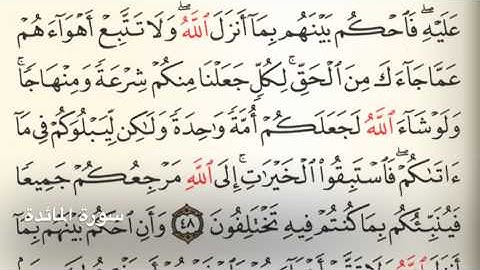 عَلَيْهِ ۖ فَٱحْكُم بَيْنَهُم بِمَآ أَنزَلَ ٱللَّهُ ۖ وَلَا تَتَّبِعْ أَهْوَآءَهُمْ
عَمَّا جَآءَكَ مِنَ ٱلْحَقِّ ۚ لِكُلٍّ جَعَلْنَا مِنكُمْ شِرْعَةً وَمِنْهَاجًا ۚ
وَلَوْ شَآءَ ٱللَّهُ لَجَعَلَكُمْ أُمَّةً وَٰحِدَةً وَلَٰكِن لِّيَبْلُوَكُمْ فِى مَآ
ءَاتَىٰكُمْ ۖ فَٱسْتَبِقُوا۟ ٱلْخَيْرَٰتِ ۚ إِلَى ٱللَّهِ مَرْجِعُكُمْ جَمِيعًا
فَيُنَبِّئُكُم بِمَا كُنتُمْ فِيهِ تَخْتَلِفُونَ ٤٨ وَأَنِ ٱحْكُم بَيْنَهُم بِمَآ
سورة المائدة
أَنزَلَ ٱللَّهُ وَلَا تَتَّبِعْ أَهْوَآءَهُمْ